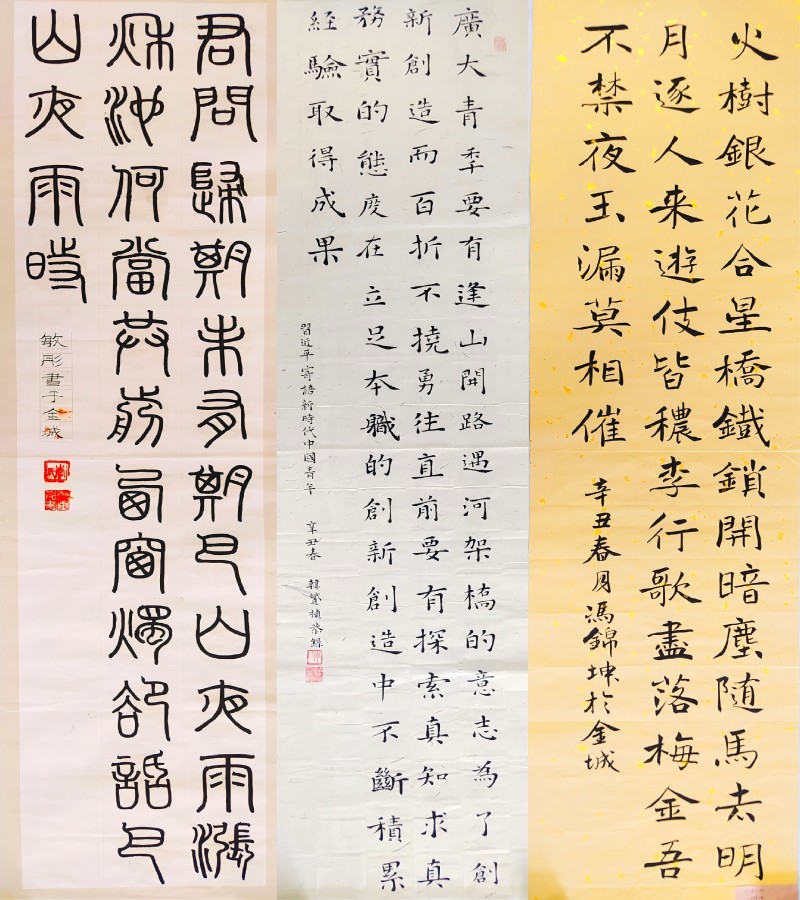 君問歸期未有期巴山夜雨漲
秌池何當共剪西窗燭卻話巴
山夜雨時
敏彤書于金城
廣大青年要有逢山開路遇河架橋的意志為了創
新創造而百折不撓勇往直前要有探索真知求真
務實的態度在立足本職的創新創造中不斷積累
經驗取得成果
習近平寄語新時代中國青年 辛丑春 韓
火樹銀花合星橋鐵鎖開暗塵随馬去明
月逐人来遊伎皆穠李行歌盡落梅金吾
不禁夜玉漏莫相催
辛丑春月馮錦坤於金城